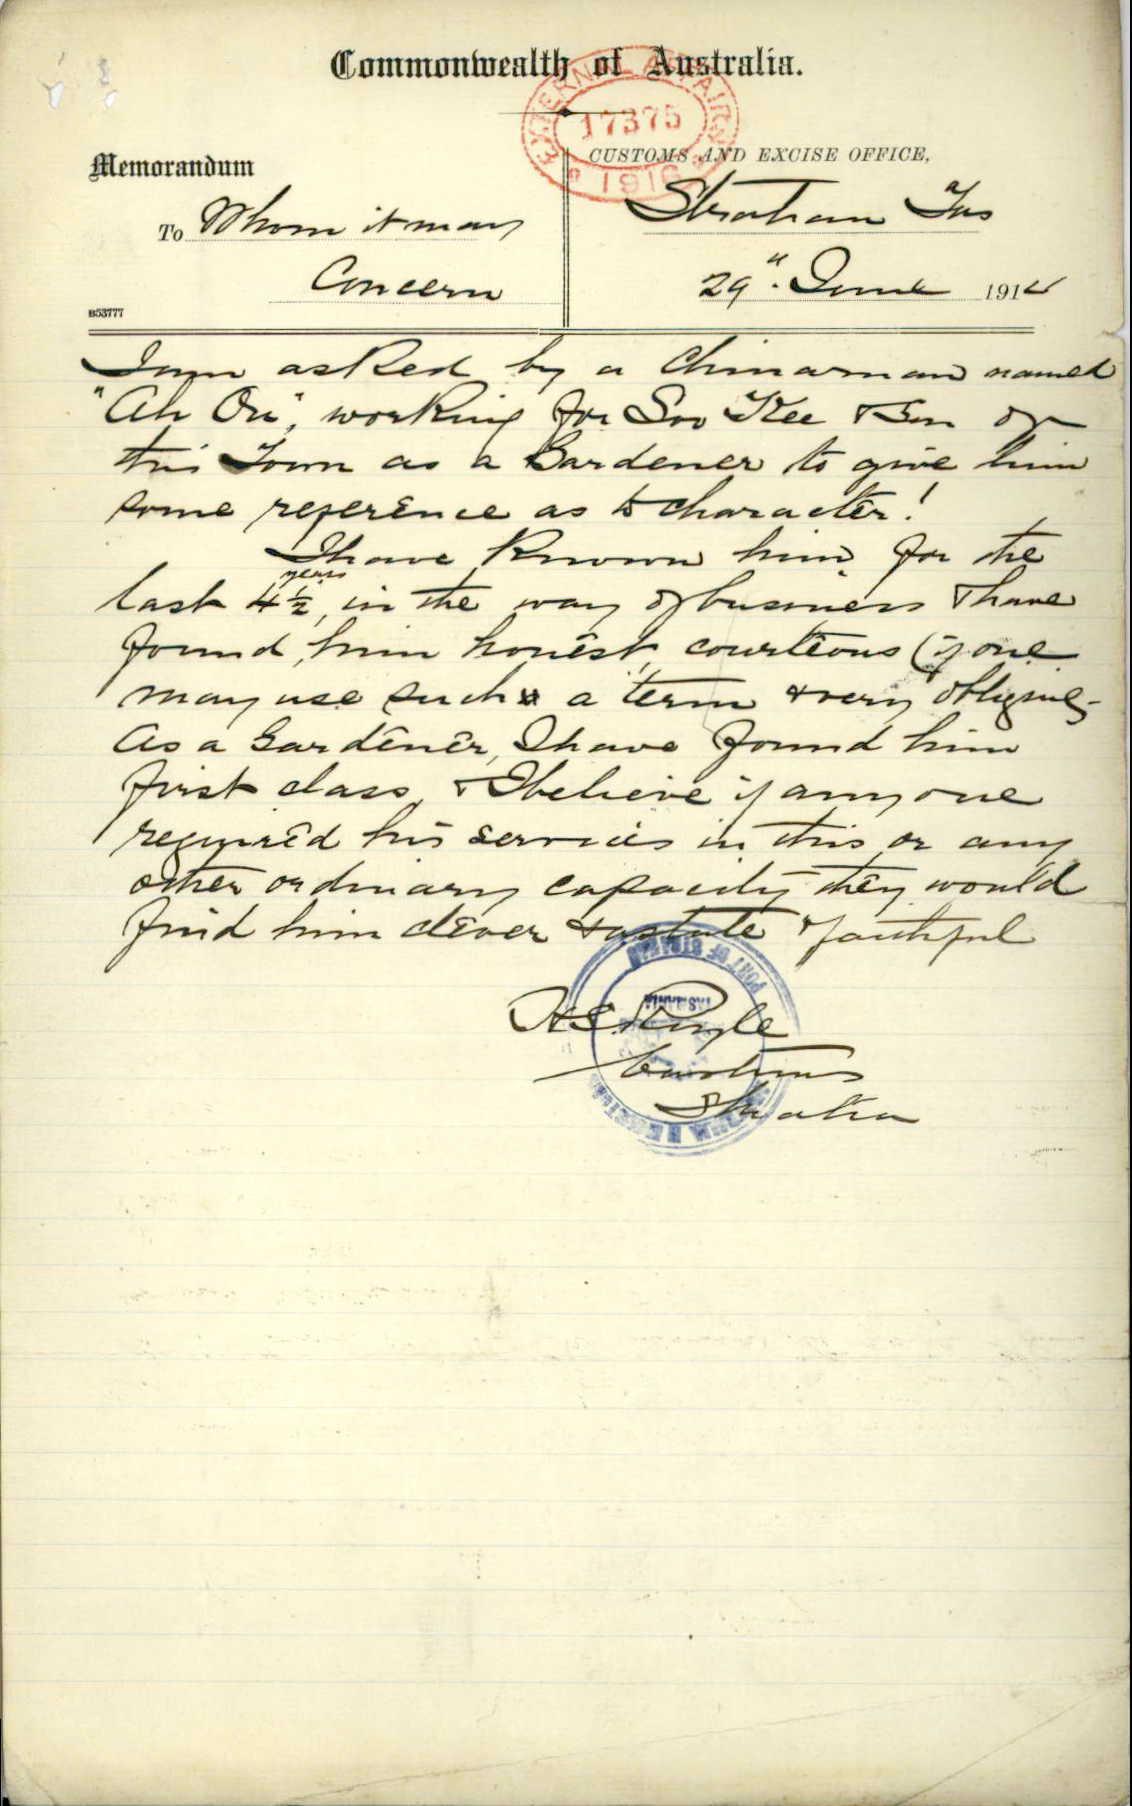 Commonwealth of Australia.
EXTERNAL AFFAIRS
17375
1916
Memorandum
CUSTOMS AND EXCISE OFFICE,
To Whom it may
Concern
Strahan Tas
29th June 191
B53777
I am asked by a Chinaman named
"Ah On", working for Soo Kee & Son of
this Town as a Gardener to give him
some reference as to character!
I have known him for the
years
last 4½, in the way of business & have
found him honest, courteous (if one
may use such a term & very obliging
As a Gardener, I have found him
first class, & I believe if anyone
required his services in this or any
other ordinary capacity they would
find him clever & astute & faithful
PORT OF STRAHAN
TASMANIA
H.S.
Customs
Strahan